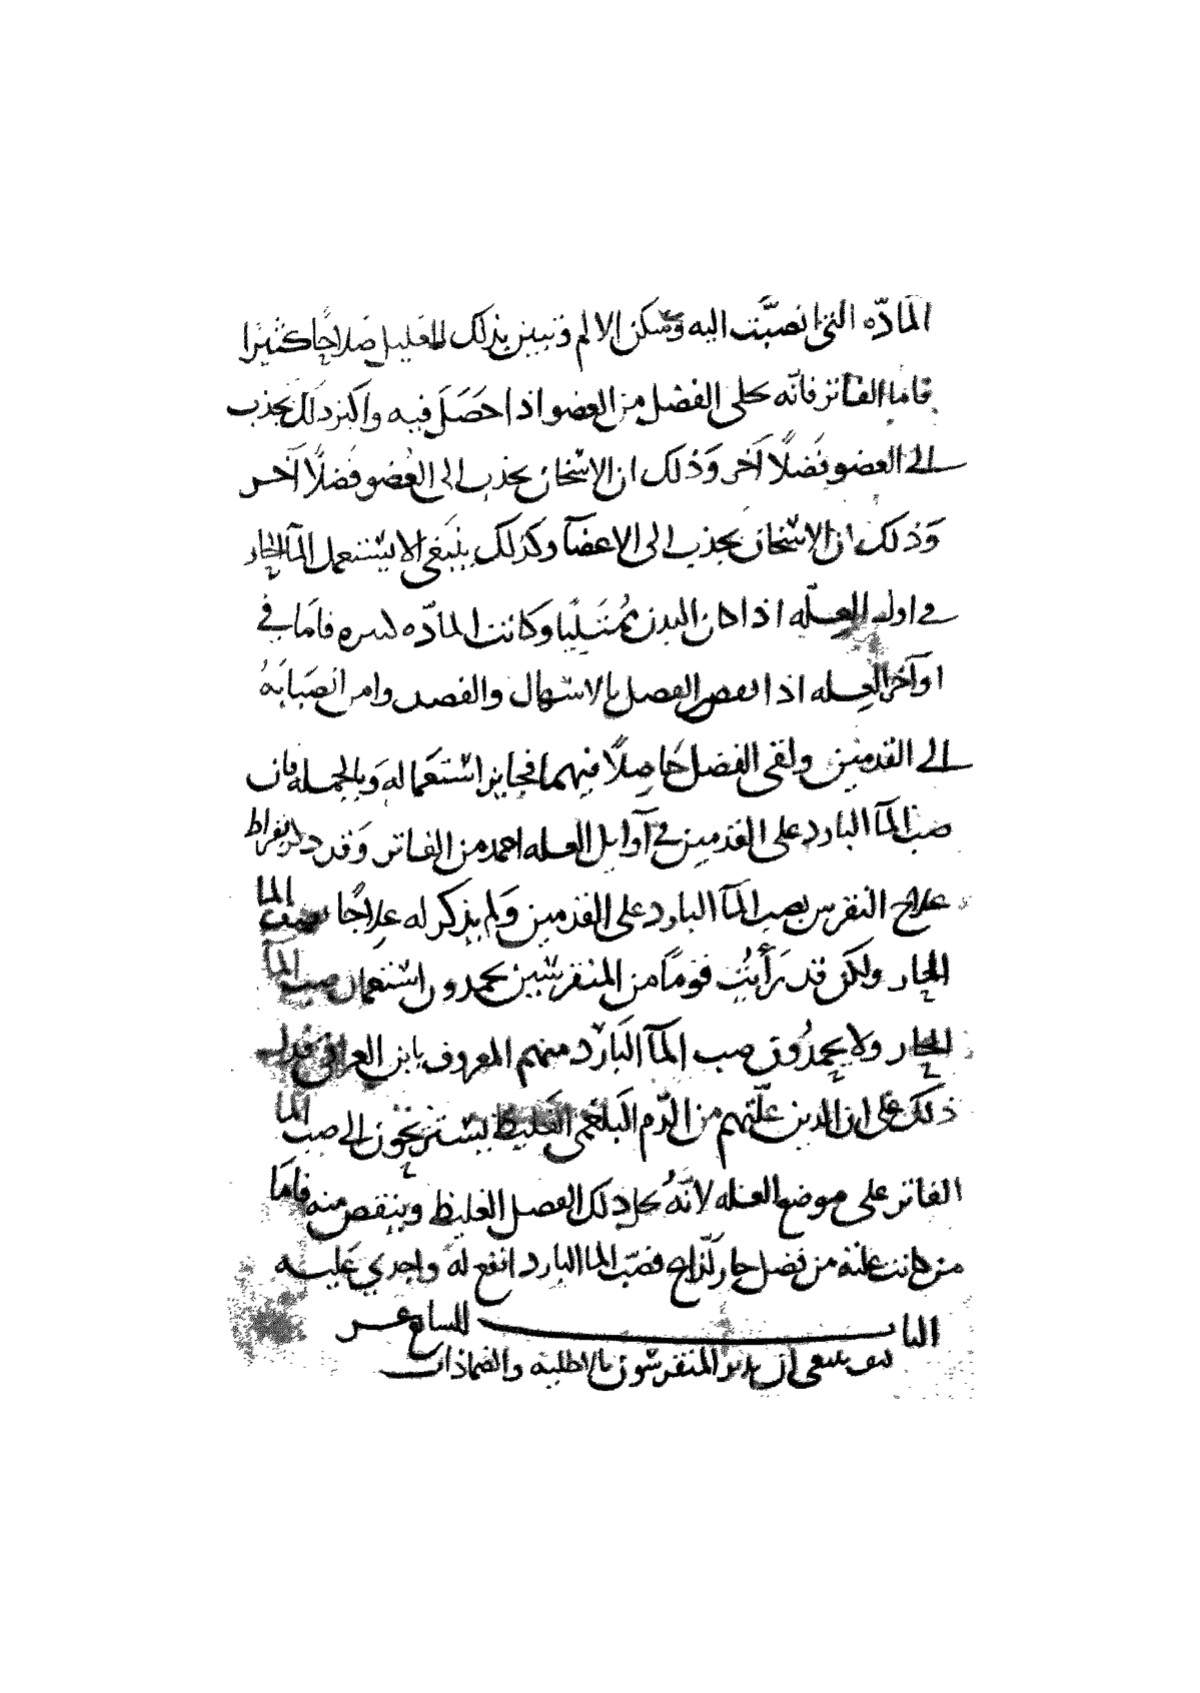 المادّه التي انصبّت اليه وسكن الالم وتبين بذلك للعليل صَلاحًا كثيرا
فاما الفاتر فانّه يحلى الفضل من العضو اذا حَصَلَ فيه واكثر ذلك يجذب
الى العضو فَضلًا آخر وَذلك ان الاسْخان يجذب الى العُضو فَضلًا آخر
وَذلك ان الاسْخان يجذب الى الاعضآ وكذلك يَنبَغى الا يسْتعمل المآ الحار
في اول العِلّه اذا كان البدن مُمتَليًا وَكانت المادّه كثيره فامَا في
اوآخر العِله اذا نقص الفصل بالاسْهال والفصد وامن انصَبابَهُ
الى القدمين ولقى الفضل حَاصِلًا فيهما فجايز اسْتعَماله وَبالجمله فان
صبّ المآ البارد على القدمين في آوايل العله احمد من الفاتر وَقد ذكر بقراط
علاج النقرس بصب المآ البارد على القدمين وَلم يذكر له عِلاجًا بصب الما
الحار ولكن قد رَأيتُ قومًا من المنقرسين يحمدون اسْتعمال صب المآ
الحار ولا يحمدُون صب المآ البَارد منهم المعروف بابن العراقى فدل
ذلك على ان الدين علّتهم من الدّم البَلغمى الغَليظ يسْتريحون الى صب المآ
الفاتر على موضع العله لانّهُ يحلل ذلك الفصل الغليظ وينقص منه فامَا
من كانت علته من فضل حار لذّاع فصَبّ الما البارد انفع له واجدي عَليه
الباب السابع عشر
كيف ينبغى ان يدبر المنقرسُون بالاطلية والضمادات